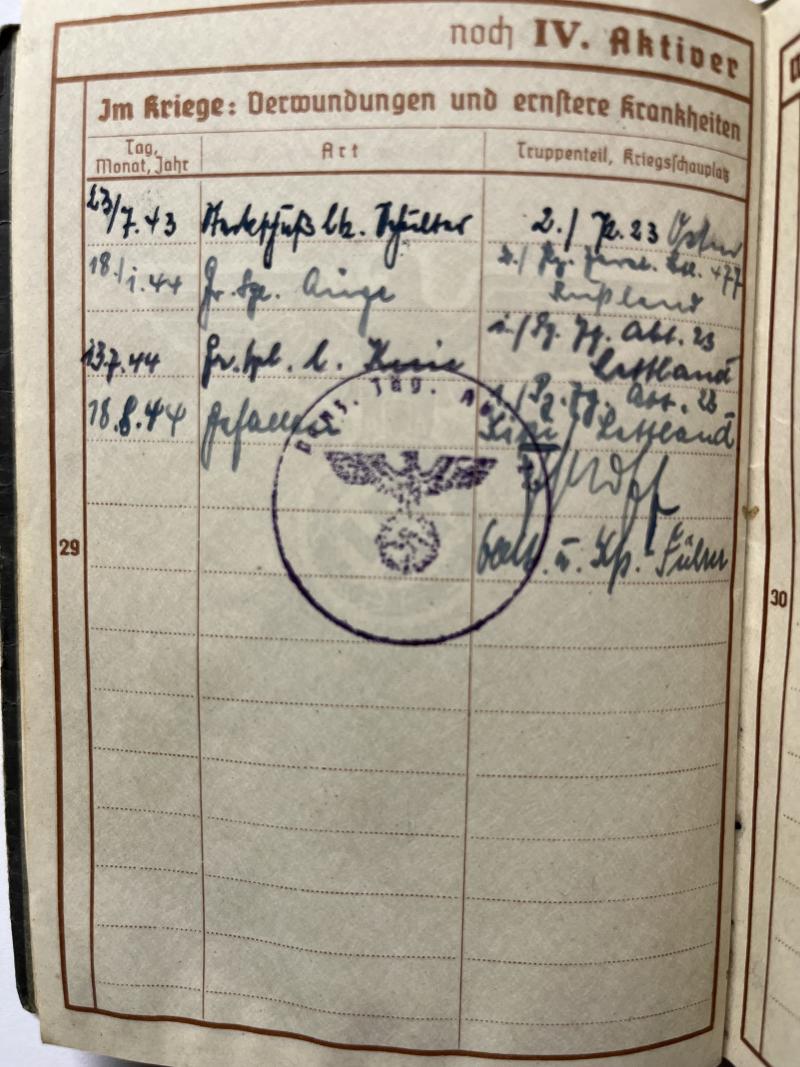 noch IV. Aktiver
Im Kriege: Verwundungen und ernstere Krankheiten
Tag, Monat, Jahr
Art
Truppenteil, Kriegsschauplatz
23/7.43 Steckschuß lk. Schulter 2./ 23 Osten
18./1.44 Gr. Spl. Auge
Rußland
13.7.44 Gr. Spl. l. Knie 1./Pz. Jg. Abt. 23
Lettland
18.8.44 Gefallen 1./Pz. Jg. Abt. 23
Lettland
Panz. Jäg. Ab
u. Kp. Führer
29
30